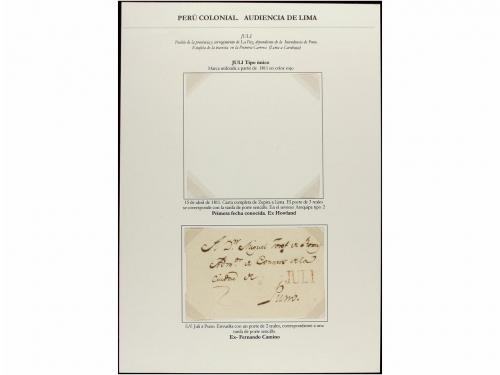 PERÚ COLONIAL. AUDIENCIA DE LIMA
JULI
Pueblo de la provincia y corregimiento de La Paz, dependiente de la Intendencia de Puno.
Estafeta de la travesía en la Primera Carrera (Lima a Carabaya)
JULI Tipo único
Marca utilizada a partir de 1811 en color rojo
15 de abril de 1811. Carta completa de Zepita a Lima. El porte de 3 reales
se corresponde con la tarifa de porte sencillo. En el reverso Arequipa tipo 2
Primera fecha conocida. Ex Howland
A Dn. Miguel de
Admor. de Correos de la
Ciudad de
JULI
Puno.
S/F. Juli a Puno. Envuelta con un porte de 2 reales, correspondiente a una
tarifa de porte sencillo
Ex- Fernando Camino